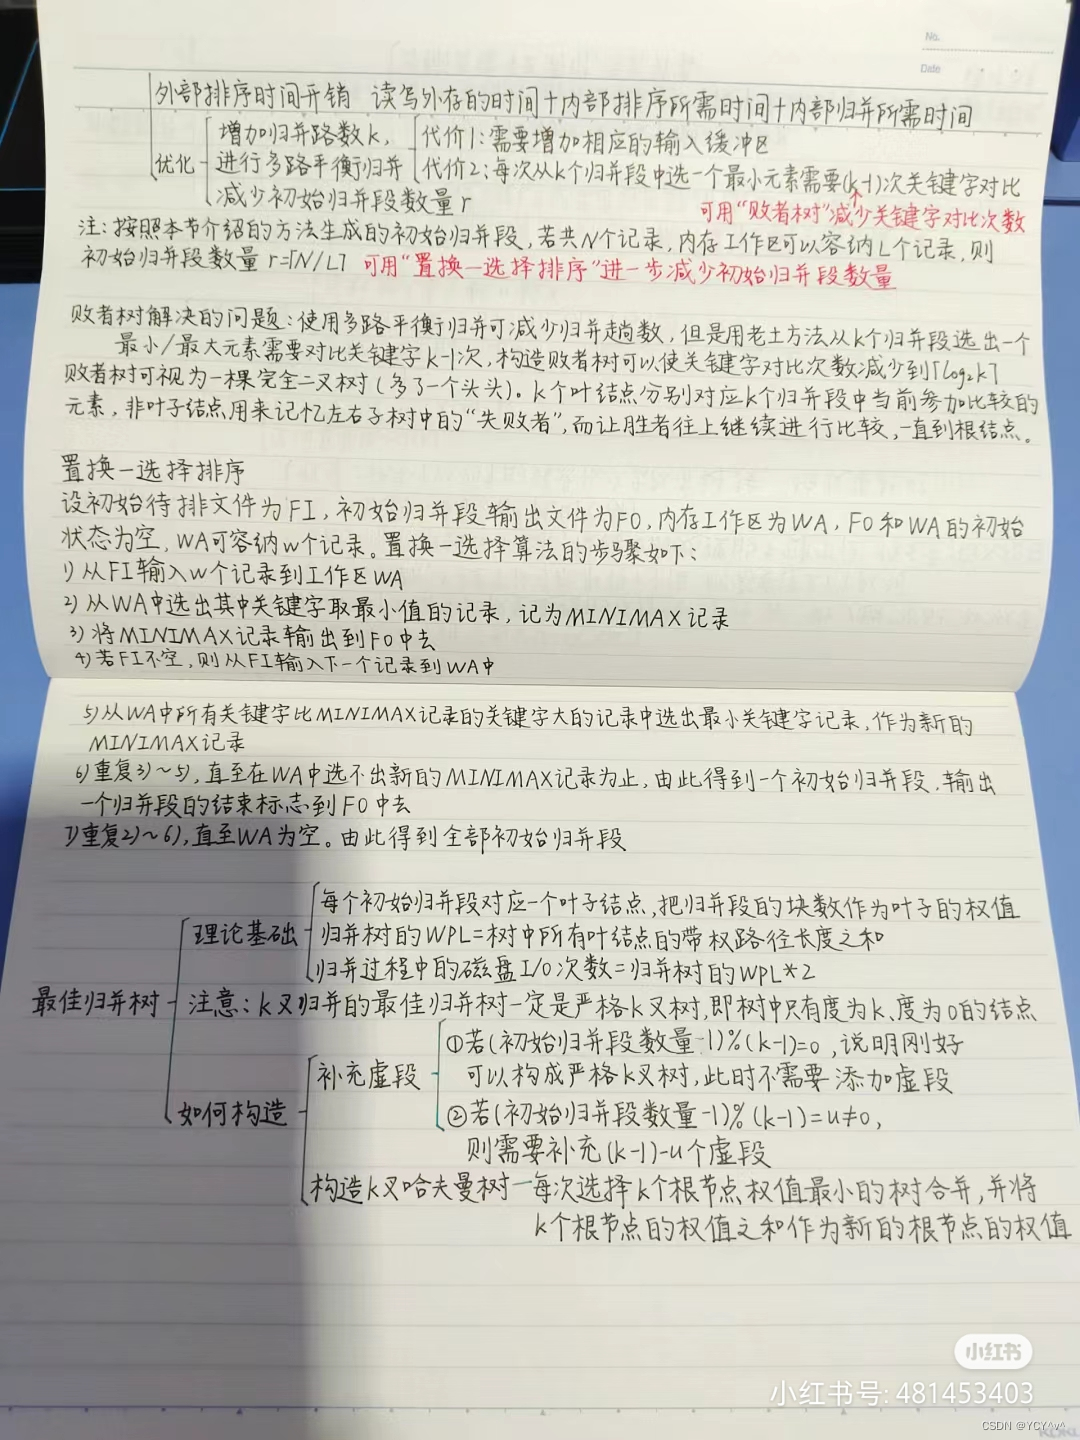 No.
Date
外部排序时间开销 读写外存的时间+内部排序所需时间+内部归并所需时间
优化
增加归并路数k,
进行多路平衡归并
代价1:需要增加相应的输入缓冲区
代价2:每次从k个归并段中选一个最小元素需要(k-1)次关键字对比
减少初始归并段数量r
可用“败者树”减少关键字对比次数
注:按照本节介绍的方法生成的初始归并段,若共N个记录,内存工作区可以容纳L个记录,则
初始归并段数量 r=⌈N/L⌉ 可用“置换一选择排序”进一步减少初始归并段数量
败者树解决的问题:使用多路平衡归并可减少归并趟数,但是用老土方法从k个归并段选出一个
最小/最大元素需要对比关键字k-1次,构造败者树可以使关键字对比次数减少到⌈log₂k⌉
败者树可视为一棵完全二叉树(多了一个头头)。k个叶结点分别对应k个归并段中当前参加比较的
元素,非叶子结点用来记忆左右子树中的“失败者”,而让胜者往上继续进行比较,一直到根结点。
置换一选择排序
设初始待排文件为FI,初始归并段输出文件为FO,内存工作区为WA,FO和WA的初始
状态为空,WA可容纳w个记录。置换一选择算法的步骤如下:
1)从FI输入w个记录到工作区WA
2)从WA中选出其中关键字取最小值的记录,记为MINIMAX记录
3)将MINIMAX记录输出到FO中去
4)若FI不空,则从FI输入下一个记录到WA中
5)从WA中所有关键字比MINIMAX记录的关键字大的记录中选出最小关键字记录,作为新的
MINIMAX记录
6)重复3)~5),直至在WA中选不出新的MINIMAX记录为止,由此得到一个初始归并段,输出
一个归并段的结束标志到FO中去
7)重复2)~6),直至WA为空。由此得到全部初始归并段
最佳归并树
理论基础
每个初始归并段对应一个叶子结点,把归并段的块数作为叶子的权值
归并树的WPL=树中所有叶结点的带权路径长度之和
归并过程中的磁盘I/O次数=归并树的WPL*2
注意:k叉归并的最佳归并树一定是严格k叉树,即树中只有度为k、度为0的结点
如何构造
补充虚段
①若(初始归并段数量-1)%(k-1)=0,说明刚好
可以构成严格k叉树,此时不需要添加虚段
②若(初始归并段数量-1)%(k-1)=u≠0,
则需要补充(k-1)-u个虚段
构造k叉哈夫曼树一每次选择k个根节点权值最小的树合并,并将
k个根节点的权值之和作为新的根节点的权值
小红书
小红书号:481453403
CSDN @YCYAvA